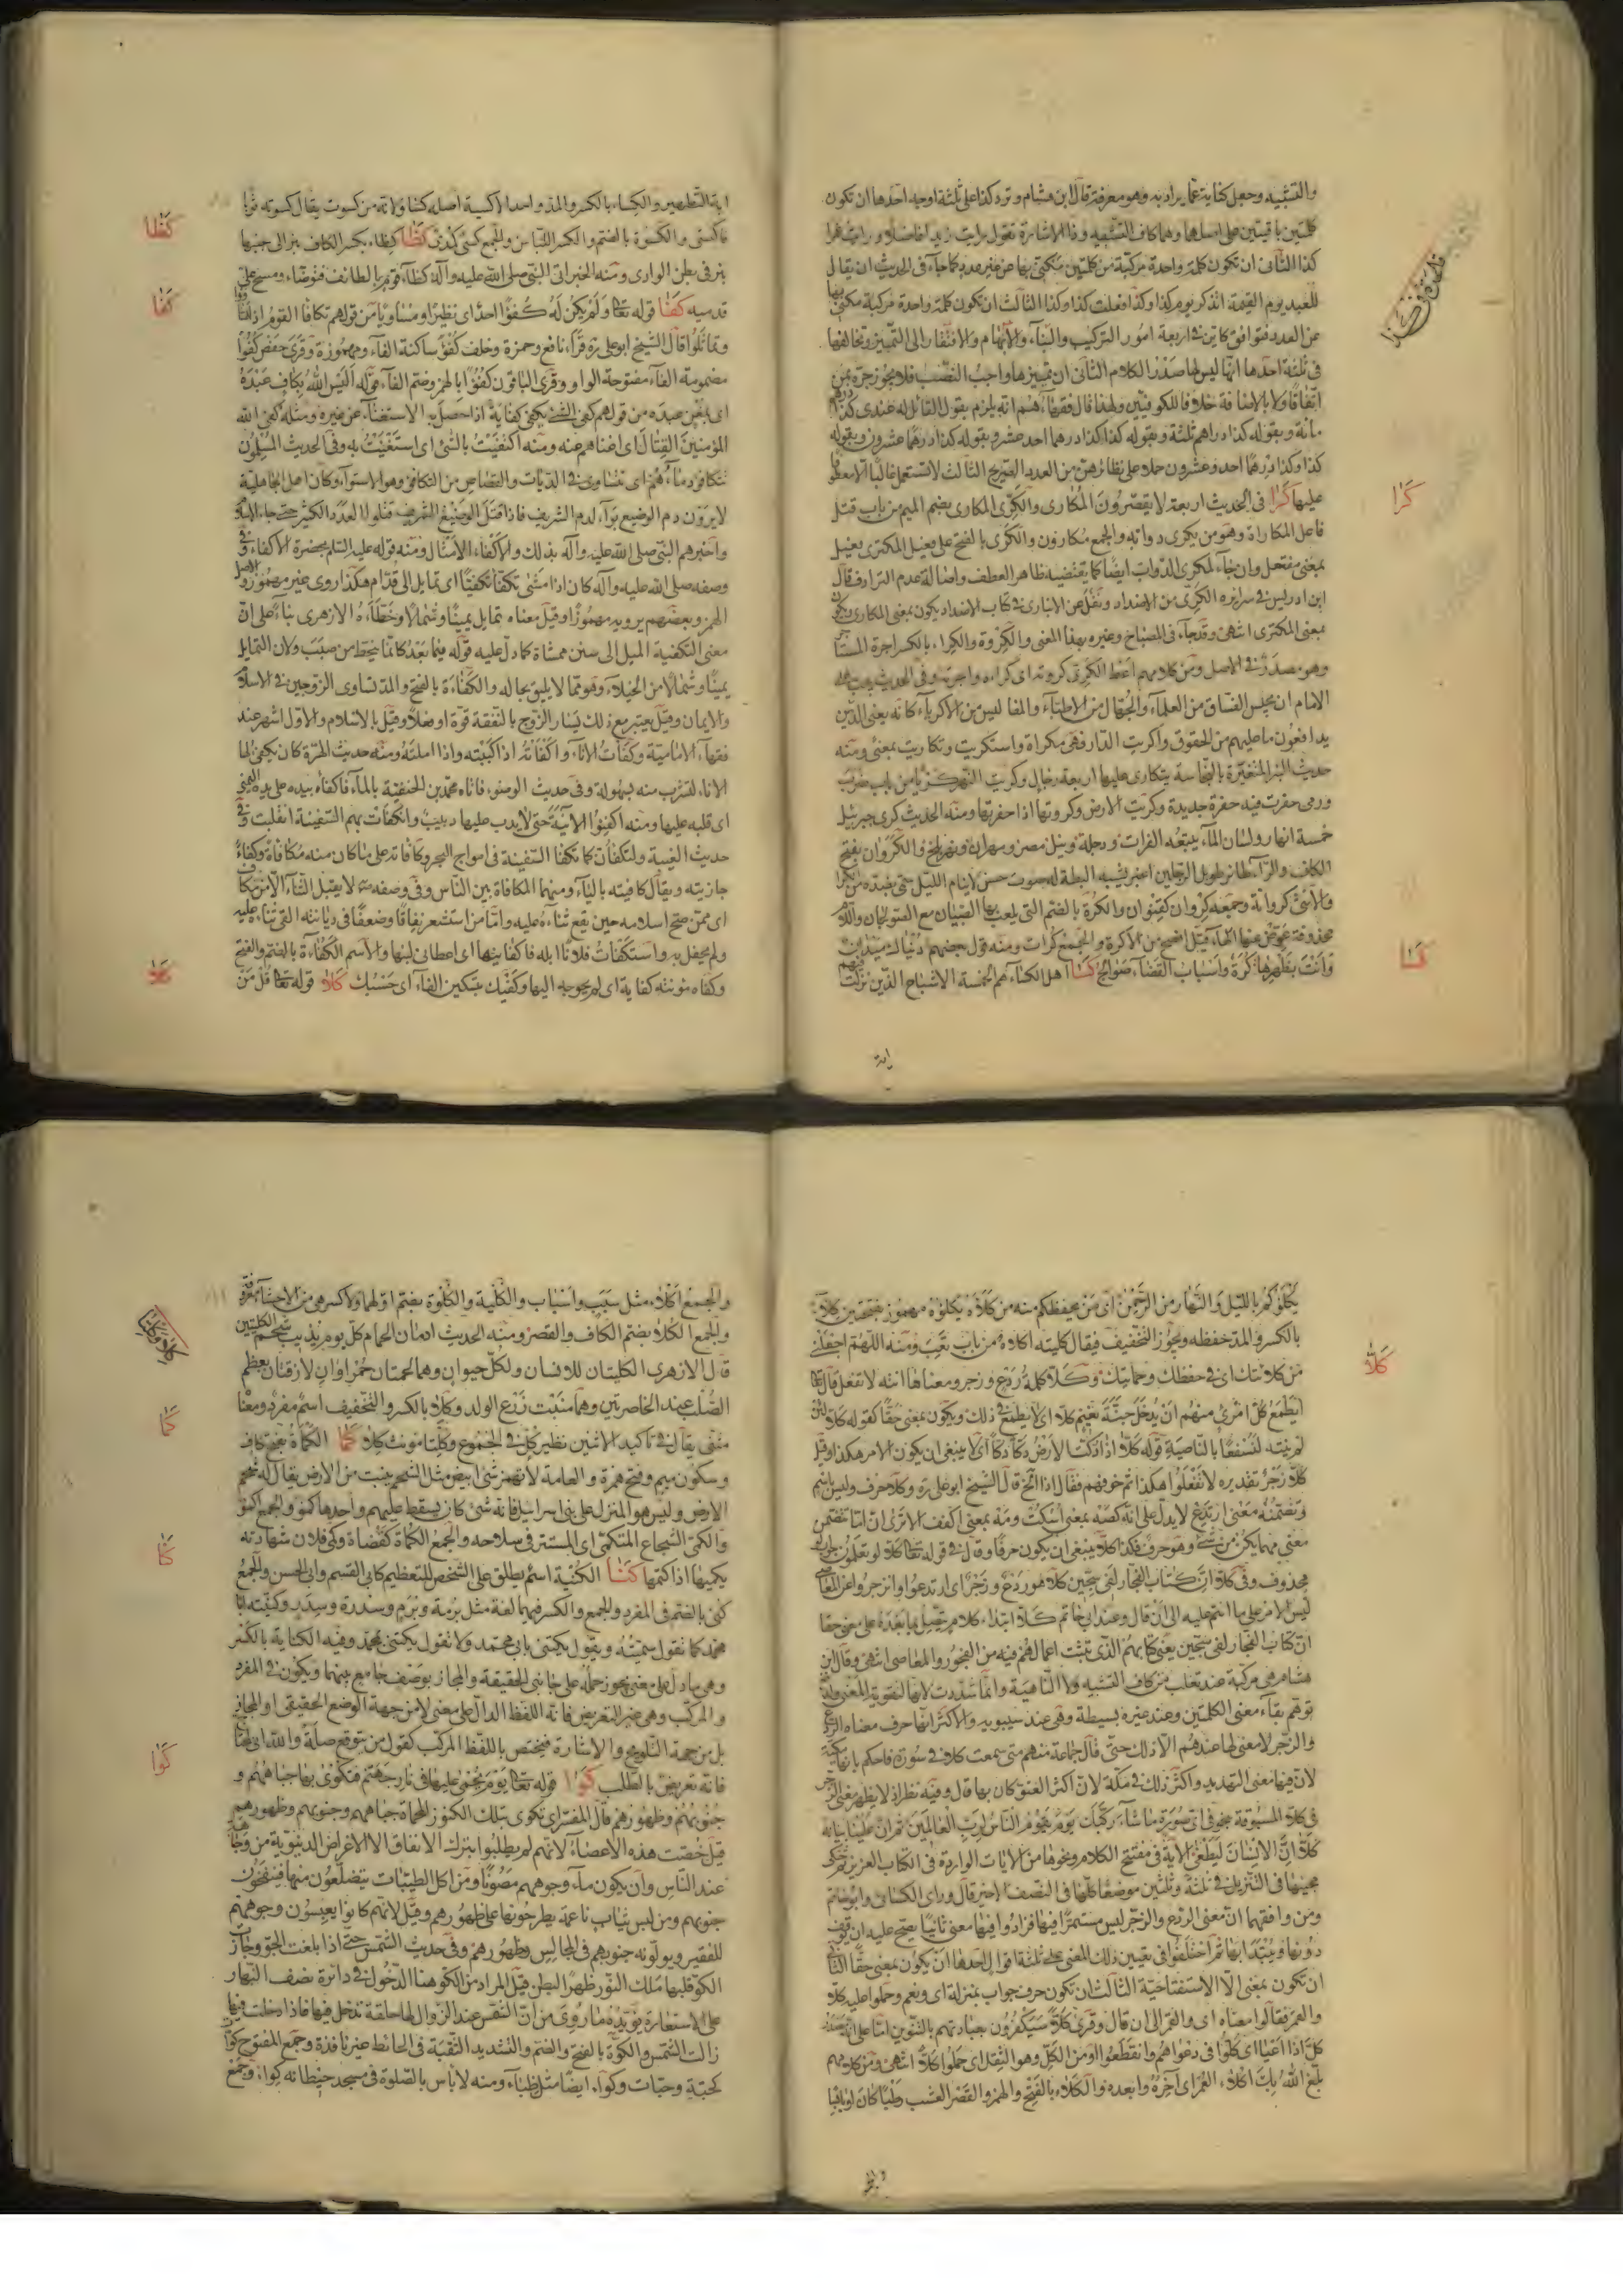 والتشبيه وجعل كناية عما يراد به وهو معرفة قال ابن هشام وترد كذا على ثلثة اوجه احدها ان تكون
كلمتين باقيتين على اصلهما وهما كاف التشبيه وذا الاشارة تقول رايت زيدا فاضلا ورايت عمرا
كذا الثانى ان تكون كلمة واحدة مركبة من كلمتين مكنى بها عن غير عدد كما جاء فى الحديث ان يقال
للعبد يوم القيمة اتذكر يوم كذا وكذا فعلت كذا وكذا الثالث ان تكون كلمة واحدة مركبة مكنى بها
عن العدد فتوافق كاين فى اربعة امور التركيب والبناء والابهام والافتقار الى التمييز وتخالفها
فى ثلثة احدها انها ليس لها صدر الكلام الثانى ان تمييزها واجب النصب فلا يجوز جره بمن
اتفاقا ولا بالاضافة خلافا للكوفيين ولهذا قال فقهاءهم انه يلزم بقول القائل له عندى كذا درهم
مائة وبقوله كذا دراهم ثلثة وبقوله كذا كذا درهما احد عشر وبقوله كذا درهما عشرون وبقوله
كذا وكذا درهما احد وعشرون حملا على نظائرهن من العدد الصريح الثالث لا تستعمل غالبا الا معطوفا
عليها كرا فى الحديث اربعة لا يقصرون المكارى والكرى المكارى بضم الميم من باب قتل
فاعل المكاراة وهو من يكرى دوابه والجمع مكارون والكرى بالفتح على فعيل المكترى فعيل
بمعنى مفتعل وان جاء لمكرى الدواب ايضا كما يقتضيه ظاهر العطف واصالة عدم الترادف قال
ابن ادريس فى سرائره الكرى من الاضداد ونقل عن الانبارى فى كتاب الاضداد يكون بمعنى المكارى ويكون
بمعنى المكترى انتهى وقد جاء فى المصباح وغيره بهذا المعنى والكروة والكراء بالكسر اجرة المستاجر
وهو مصدر فى الاصل ومن كلامهم اعط الكرى كروته اى كراءه واجرته وفى الحديث يجب على
الامام ان يحبس الفساق من العلماء والجهال من الاطباء والمفاليس من الاكرياء كانه يعنى الذين
يدافعون ما عليهم من الحقوق واكريت الدار فهى مكراة واستكريت وتكاريت بمعنى ومنه
حديث البئر المتغيرة بالنجاسة يتكارى عليها اربعة رجال وكريت النهر كريا من باب ضرب
ورمى حفرت فيه حفرة جديدة وكريت الارض وكروتها اذا حفرتها ومنه الحديث كرى جبرئيل
خمسة انهار ولسان الماء يتبعه الفرات ودجلة ونيل مصر ومهران ونهر بلخ والكروان بفتح
الكاف والراء طائر طويل الرجلين اغبر يشبه البطة له صوت حسن لا ينام الليل
والانثى كروانة وجمعه كروان كقنوان والكرة بالضم التى يلعب بها الصبيان مع الصولجان واللام
محذوفة عوض عنها الهاء قيل افصح من الاكرة والجمع كرات ومنه قول بعضهم دنياك ميدان
وانت بظهرها كرة واسباب القضاء صوالج كسا اهل الكساء هم الخمسة الاشباح الذين نزلت فيهم
كرا
كسا
اية
اية التطهير والكساء بالكسر والمد واحد الاكسية اصله كساو لانه من كسوت يقال كسوته ثوبا
فاكتسى والكسوة بالضم والكسر اللباس والجمع كسى كمدى كظا كظاء بكسر الكاف بئر الى جنبها
بئر فى بطن الوادى ومنه الخبر اتى النبى صلى الله عليه وآله كظاء قوم بالطائف فتوضاء ومسح على
قدميه كفا قوله تعا ولم يكن له كفوا احد اى نظيرا ومساويا من قولهم تكافا القوم اذا تساووا
وتماثلوا قال الشيخ ابو على ره قراء نافع وحمزة وخلف كفؤ ساكنة الفاء ومهموزة وقرى حفص كفوا
مضمومة الفاء مفتوحة الواو وقرى الباقون كفؤا بالهمز وضم الفاء قوله اليس الله بكاف عبده
اى بمغن عبده من قولهم كفى الشئ يكفى كفاية اذا حصل به الاستغناء عن غيره ومثله كفى الله
المؤمنين القتال اى اغناهم عنه ومنه اكتفيت بالشئ اى استغنيت به وفى الحديث المسلمون
تتكافؤ دماءهم اى تتساوى فى الديات والقصاص من التكافؤ وهو الاستواء وكان اهل الجاهلية
لا يرون دم الوضيع بواء لدم الشريف فاذا قتل الوضيع الشريف قتلوا العدد الكثير حتى جاء الاسلام
واخبرهم النبى صلى الله عليه وآله بذلك والاكفاء الامثال ومنه قوله عليه السلم بحضرة الاكفاء وفى
وصفه صلى الله عليه وآله كان اذا مشى تكفا تكفيا اى تمايل الى قدام هكذا روى غير مهموز والاصل
الهمز وبعضهم يرويه مهموزا وقيل معناه تمايل يمينا وشمالا وخطاءه الازهرى بناء على ان
معنى التكفية الميل الى سنن ممشاة كما دل عليه قوله فيما بعد كانما ينحط من صبب ولان التمايل
يمينا وشمالا من الخيلاء وهو مما لا يليق بحاله والكفاءة بالفتح والمد تساوى الزوجين فى الاسلام
والايمان وقيل يعتبر مع ذلك يسار الزوج بالنفقة قوة او فعلا وقيل بالاسلام والاول اشهر عند
فقهاء الامامية وكفات الاناء واكفاته اذا كببته واذا املته ومنه حديث الهرة كان يكفى لها
الاناء لتشرب منه بسهولة وفى حديث الوضوء فاتاه محمد بن الحنفية بالماء فاكفاه بيده على يده اليمنى
اى قلبه عليها ومنه اكفئوا الآنية حتى لا يدب عليها دبيب وانكفات بهم السفينة انقلبت وفى
حديث الغيبة ولتكفان كما تكفا السفينة فى امواج البحر وكافاته على ما كان منه مكافاة وكفاء
جازيته ويقال كافيته بالياء ومنهما المكافاة بين الناس وفى وصفه لا يقبل الثناء الا من مكاف
اى ممن صح اسلامه حين يقع ثناءه عليه واما من استشعر نفاقا وضعفا فى ديانته القى ثناءه عليه
ولم يحفل به واستكفات فلانا ابله فاكفانيها اى اعطانى لبنها والاسم الكفاءة بالضم والفتح
وكفاه مؤنته كفاية اى لم يحوجه اليها وكفيك بتسكين الفاء اى حسبك كلا قوله تعا قل من
كظا
كفا
كلا
يكلؤكم بالليل والنهار من الرحمن اى من يحفظكم منه من كلاه يكلؤه مهموز بفتحتين كلاءة
بالكسر والمد حفظه ويجوز التخفيف فيقال كليته اكلاه من باب تعب ومنه اللهم اجعلنى
من كلائتك اى فى حفظك وحمايتك وكلا كلمة ردع وزجر ومعناها انته لا تفعل قال تعا
ايطمع كل امرئ منهم ان يدخل جنة نعيم كلا اى لا يطمع فى ذلك ويكون بمعنى حقا كقوله كلا لئن
لم ينته لنسفعا بالناصية قوله كلا اذا دكت الارض دكا دكا اى لا ينبغى ان يكون الامر هكذا وقيل
كلا زجر تقديره لا تفعلوا هكذا ثم خوفهم فقال اذا الخ قال الشيخ ابو على ره وكلا حرف وليس باسم
وتضمنه معنى ارتدع لا يدل على انه كصه بمعنى اسكت ومه بمعنى اكفف الا ترى ان اما تتضمن
معنى مهما يكن من شئ وهو حرف فكذا كلا ينبغى ان يكون حرفا وقال فى قوله تعا كلا لو تعلمون جوابه
محذوف وفى كلا ان كتاب الفجار لفى سجين كلا هو ردع وزجر اى ارتدعوا وانزجروا عن المعاصى
ليس الامر على ما انتم عليه الى ان قال وعند ابى حاتم كلا ابتداء كلام يتصل بما بعده على معنى حقا
ان كتاب الفجار لفى سجين يعنى كتابهم الذى تثبت اعمالهم فيه من الفجور والمعاصى انتهى وقال ابن
هشام هى مركبة عند ثعلب من كاف التشبيه ولا الناهية وانما شددت لامها لتقوية المعنى ولدفع
توهم بقاء معنى الكلمتين وعند غيره بسيطة وهى عند سيبويه والاكثر انها حرف معناه الردع
والزجر لا معنى لها عندهم الا ذلك حتى قال جماعة منهم متى سمعت كلا فى سورة فاحكم بانها مكية
لان فيها معنى التهديد واكثر ذلك فى مكة لان اكثر العتو كان بها قال وفيه نظر اذ لا يظهر معنى الزجر
فى كلا المسبوقة بنحو فى اى صورة ما شاء ركبك يوم يقوم الناس لرب العالمين ثم ان علينا بيانه
كلا ان الانسان ليطغى الآية فى مفتتح الكلام ونحوها من الآيات الواردة فى الكتاب العزيز ثم ذكر
مجيئها فى التنزيل فى ثلثة وثلثين موضعا كلها فى النصف الاخير قال وراى الكسائى وابو حاتم
ومن وافقهما ان معنى الردع والزجر ليس مستمرا فيها فزادوا فيها معنى ثانيا يصح عليه ان يوقف
دونها ويبتدا بها ثم اختلفوا فى تعيين ذلك المعنى على ثلثة اقوال احدها ان يكون بمعنى حقا الثانى
ان تكون بمعنى الا الاستفتاحية الثالث ان تكون حرف جواب بمنزلة اى ونعم وحملوا عليه كلا
والقمر فقالوا معناه اى والقمر الى ان قال وقرى كلا سيكفرون بعبادتهم بالتنوين اما على انه مصدر
كل اذا اعيا اى كلوا فى دعواهم وانقطعوا او من الكل وهو الثقل اى حملوا كلا انتهى ومن كلامهم
بلغ الله بك اكلاء العمر اى آخره وابعده والكلاء بالفتح والهمز والقصر العشب رطبا كان او يابسا
كلا
والجمع اكلاء مثل سبب واسباب والكلية والكلوة بضم اولهما ولا كسر هى من الاحشاء معروفة
والجمع الكلا بضم الكاف والقصر ومنه الحديث ادمان الحمام كل يوم يذيب شحم الكليتين
قال الازهرى الكليتان للانسان ولكل حيوان وهما لحمتان حمراوان لازقتان بعظم
الصلب عند الخاصرتين وهما منبت زرع الولد وكلا بالكسر والتخفيف اسم مفرد ومعناه
مثنى يقال فى تاكيد الاثنين نظير كل فى الجموع وكلتا مونث كلا كما الكماة بفتح كاف
وسكون ميم وفتح همزة والعامة لا تهمز شئ ابيض مثل الشحم ينبت من الارض يقال له شحم
الارض وليس هو المنزل على بنى اسرائيل فانه شئ كان يسقط عليهم واحدها كمؤ والجمع اكمؤ
والكمى الشجاع المتكمى اى المستتر فى سلاحه والجمع الكماة كقضاة وكمى فلان شهادته
يكميها اذا كتمها كنا الكنية اسم يطلق على الشخص للتعظيم كابى القسم وابى الحسن والجمع
كنى بالضم فى المفرد والجمع والكسر فيهما لغة مثل برمة وبرم وسدرة وسدر وكنيته ابا
محمد كما تقول سميته ويقول يكنى بابى محمد ولا تقول يكنى محمد وفيه الكناية بالكسر
وهى ما دل على معنى يجوز حمله على جانبى الحقيقة والمجاز بوصف جامع بينهما ويكون فى المفرد
والمركب وهى غير التعريض فانه اللفظ الدال على معنى لا من جهة الوضع الحقيقى او المجازى
بل من جهة التلويح والاشارة فيختص باللفظ المركب كقول من يتوقع صلة والله انى محتاج
فانه تعريض بالطلب كوا قوله تعا يوم يحمى عليها فى نار جهنم فتكوى بها جباههم و
جنوبهم وظهورهم قال المفسر اى تكوى بتلك الكنوز المحماة جباههم وجنوبهم وظهورهم
قيل خصت هذه الاعضاء لانهم لم يطلبوا بترك الانفاق الا الاغراض الدنيوية من وجاهة
عند الناس وان يكون ماء وجوههم مصونا ومن اكل الطيبات يتضلعون منها فينفخون
جنوبهم ومن لبس ثياب ناعمة يطرحونها على ظهورهم وقيل لانهم كانوا يعبسون وجوههم
للفقير ويولونه جنوبهم فى المجالس وظهورهم وفى حديث الشمس حتى اذا بلغت الجو وجازت
الكو قلبها ملك النور ظهرا لبطن قيل المراد من الكو هنا الدخول فى دائرة نصف النهار
على الاستعارة يؤيده ما روى من ان الشمس عند الزوال لها حلقة تدخل فيها فاذا دخلت فيها
زالت الشمس والكوة بالفتح والضم والتشديد الثقبة فى الحائط غير نافذة وجمع المفتوح كوات
كحبة وحبات وكواء ايضا مثل ظباء ومنه لا باس بالصلوة فى مسجد حيطانه كواء وجمع
كما
كنا
كوا